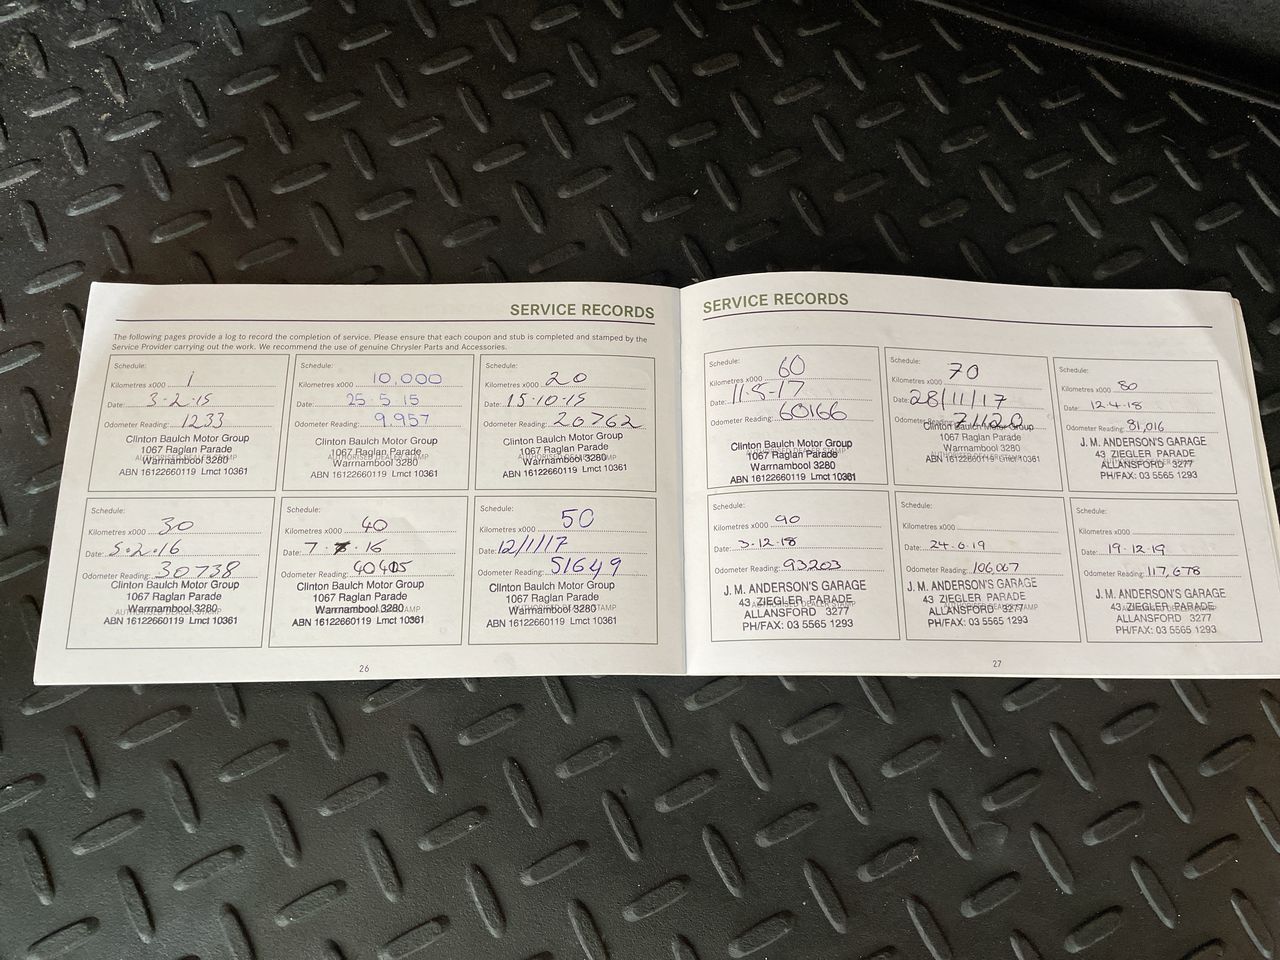 SERVICE RECORDS
The following pages provide a log to record the completion of service. Please ensure that each coupon and stub is completed and stamped by the
Service Provider carrying out the work. We recommend the use of genuine Chrysler Parts and Accessories.
Schedule:
Kilometres x000 1
Date: 3-2-15
Odometer Reading: 1233
Clinton Baulch Motor Group
1067 Raglan Parade
Warrnambool 3280
ABN 16122660119 Lmct 10361
Schedule:
Kilometres x000 10,000
Date: 25.5.15
Odometer Reading: 9.957
Clinton Baulch Motor Group
1067 Raglan Parade
Warrnambool 3280
ABN 16122660119 Lmct 10361
Schedule:
Kilometres x000 20
Date: 15.10.15
Odometer Reading: 20762
Clinton Baulch Motor Group
1067 Raglan Parade
Warrnambool 3280
ABN 16122660119 Lmct 10361
Schedule:
Kilometres x000 30
Date: 5.2.16
Odometer Reading: 30738
Clinton Baulch Motor Group
1067 Raglan Parade
Warrnambool 3280
AUTHORISED DEALER STAMP
ABN 16122660119 Lmct 10361
Schedule:
Kilometres x000 40
Date: 7. . 16
Odometer Reading: 40405
Clinton Baulch Motor Group
1067 Raglan Parade
Warrnambool 3280
ABN 16122660119 Lmct 10361
Schedule:
Kilometres x000 50
Date: 12/1/17
Odometer Reading: 51649
Clinton Baulch Motor Group
1067 Raglan Parade
Warrnambool 3280
ABN 16122660119 Lmct 10361
26
SERVICE RECORDS
Schedule:
Kilometres x000 60
Date: 11-5-17
Odometer Reading: 60166
Clinton Baulch Motor Group
1067 Raglan Parade
Warrnambool 3280
ABN 16122660119 Lmct 10361
Schedule:
Kilometres x000 70
Date: 28/11/17
Odometer Reading: 71120
Clinton Baulch Motor Group
1067 Raglan Parade
Warrnambool 3280
ABN 16122660119 Lmct 10361
Schedule:
Kilometres x000 80
Date: 12.4.18
Odometer Reading: 81,016
J. M. ANDERSON'S GARAGE
43 ZIEGLER PARADE
ALLANSFORD 3277
PH/FAX: 03 5565 1293
Schedule:
Kilometres x000 90
Date: 3.12.18
Odometer Reading: 93203
J. M. ANDERSON'S GARAGE
43 ZIEGLER PARADE
ALLANSFORD 3277
PH/FAX: 03 5565 1293
Schedule:
Kilometres x000
Date: 24.6.19
Odometer Reading: 106,067
J. M. ANDERSON'S GARAGE
43 ZIEGLER PARADE
ALLANSFORD 3277
PH/FAX: 03 5565 1293
Schedule:
Kilometres x000
Date: 19.12.19
Odometer Reading: 117,678
J. M. ANDERSON'S GARAGE
43 ZIEGLER PARADE
ALLANSFORD 3277
PH/FAX: 03 5565 1293
27